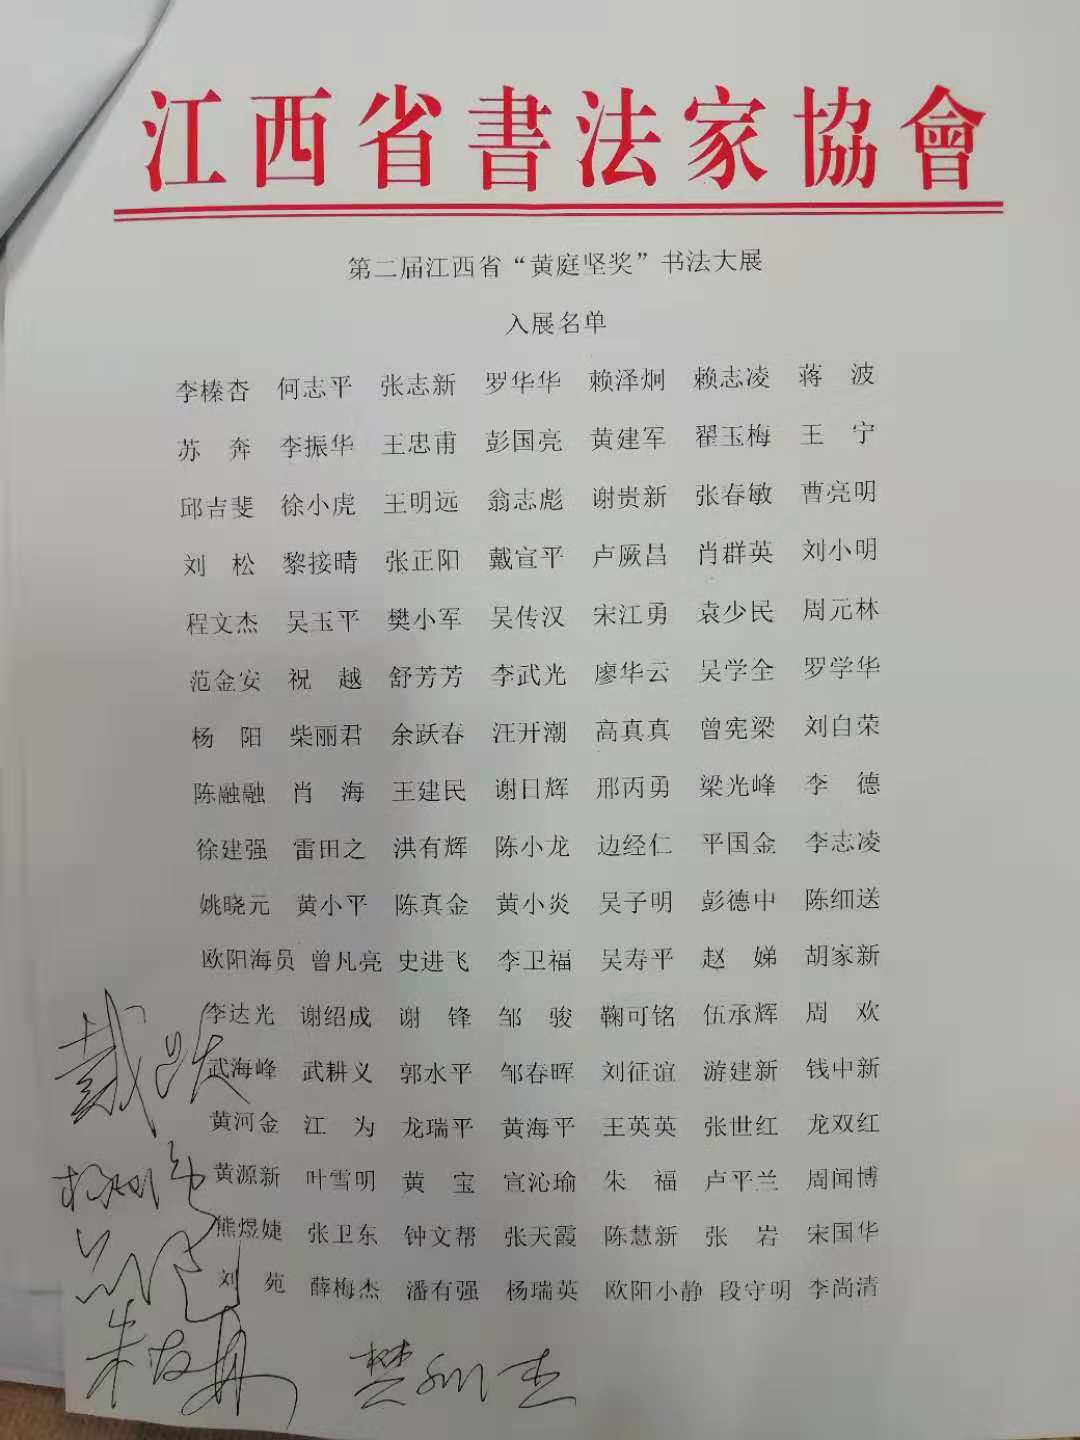 江西省書法家協會
第二届江西省“黄庭坚奖”书法大展
入展名单
李榛杏 何志平 张志新 罗华华 赖泽炯 赖志凌 蒋 波
苏 奔 李振华 王忠甫 彭国亮 黄建军 翟玉梅 王 宁
邱吉斐 徐小虎 王明远 翁志彪 谢贵新 张春敏 曹亮明
刘 松 黎接晴 张正阳 戴宣平 卢厥昌 肖群英 刘小明
程文杰 吴玉平 樊小军 吴传汉 宋江勇 袁少民 周元林
范金安 祝 越 舒芳芳 李武光 廖华云 吴学全 罗学华
杨 阳 柴丽君 余跃春 汪开潮 高真真 曾宪梁 刘自荣
陈融融 肖 海 王建民 谢日辉 邢丙勇 梁光峰 李 德
徐建强 雷田之 洪有辉 陈小龙 边经仁 平国金 李志凌
姚晓元 黄小平 陈真金 黄小炎 吴子明 彭德中 陈细送
欧阳海员 曾凡亮 史进飞 李卫福 吴寿平 赵 娣 胡家新
李达光 谢绍成 谢 锋 邹 骏 鞠可铭 伍承辉 周 欢
武海峰 武耕义 郭水平 邹春晖 刘征谊 游建新 钱中新
黄河金 江 为 龙瑞平 黄海平 王英英 张世红 龙双红
黄源新 叶雪明 黄 宝 宣沁瑜 朱 福 卢平兰 周闻博
熊煜婕 张卫东 钟文帮 张天霞 陈慧新 张 岩 宋国华
刘 苑 薛梅杰 潘有强 杨瑞英 欧阳小静 段守明 李尚清
戴跃